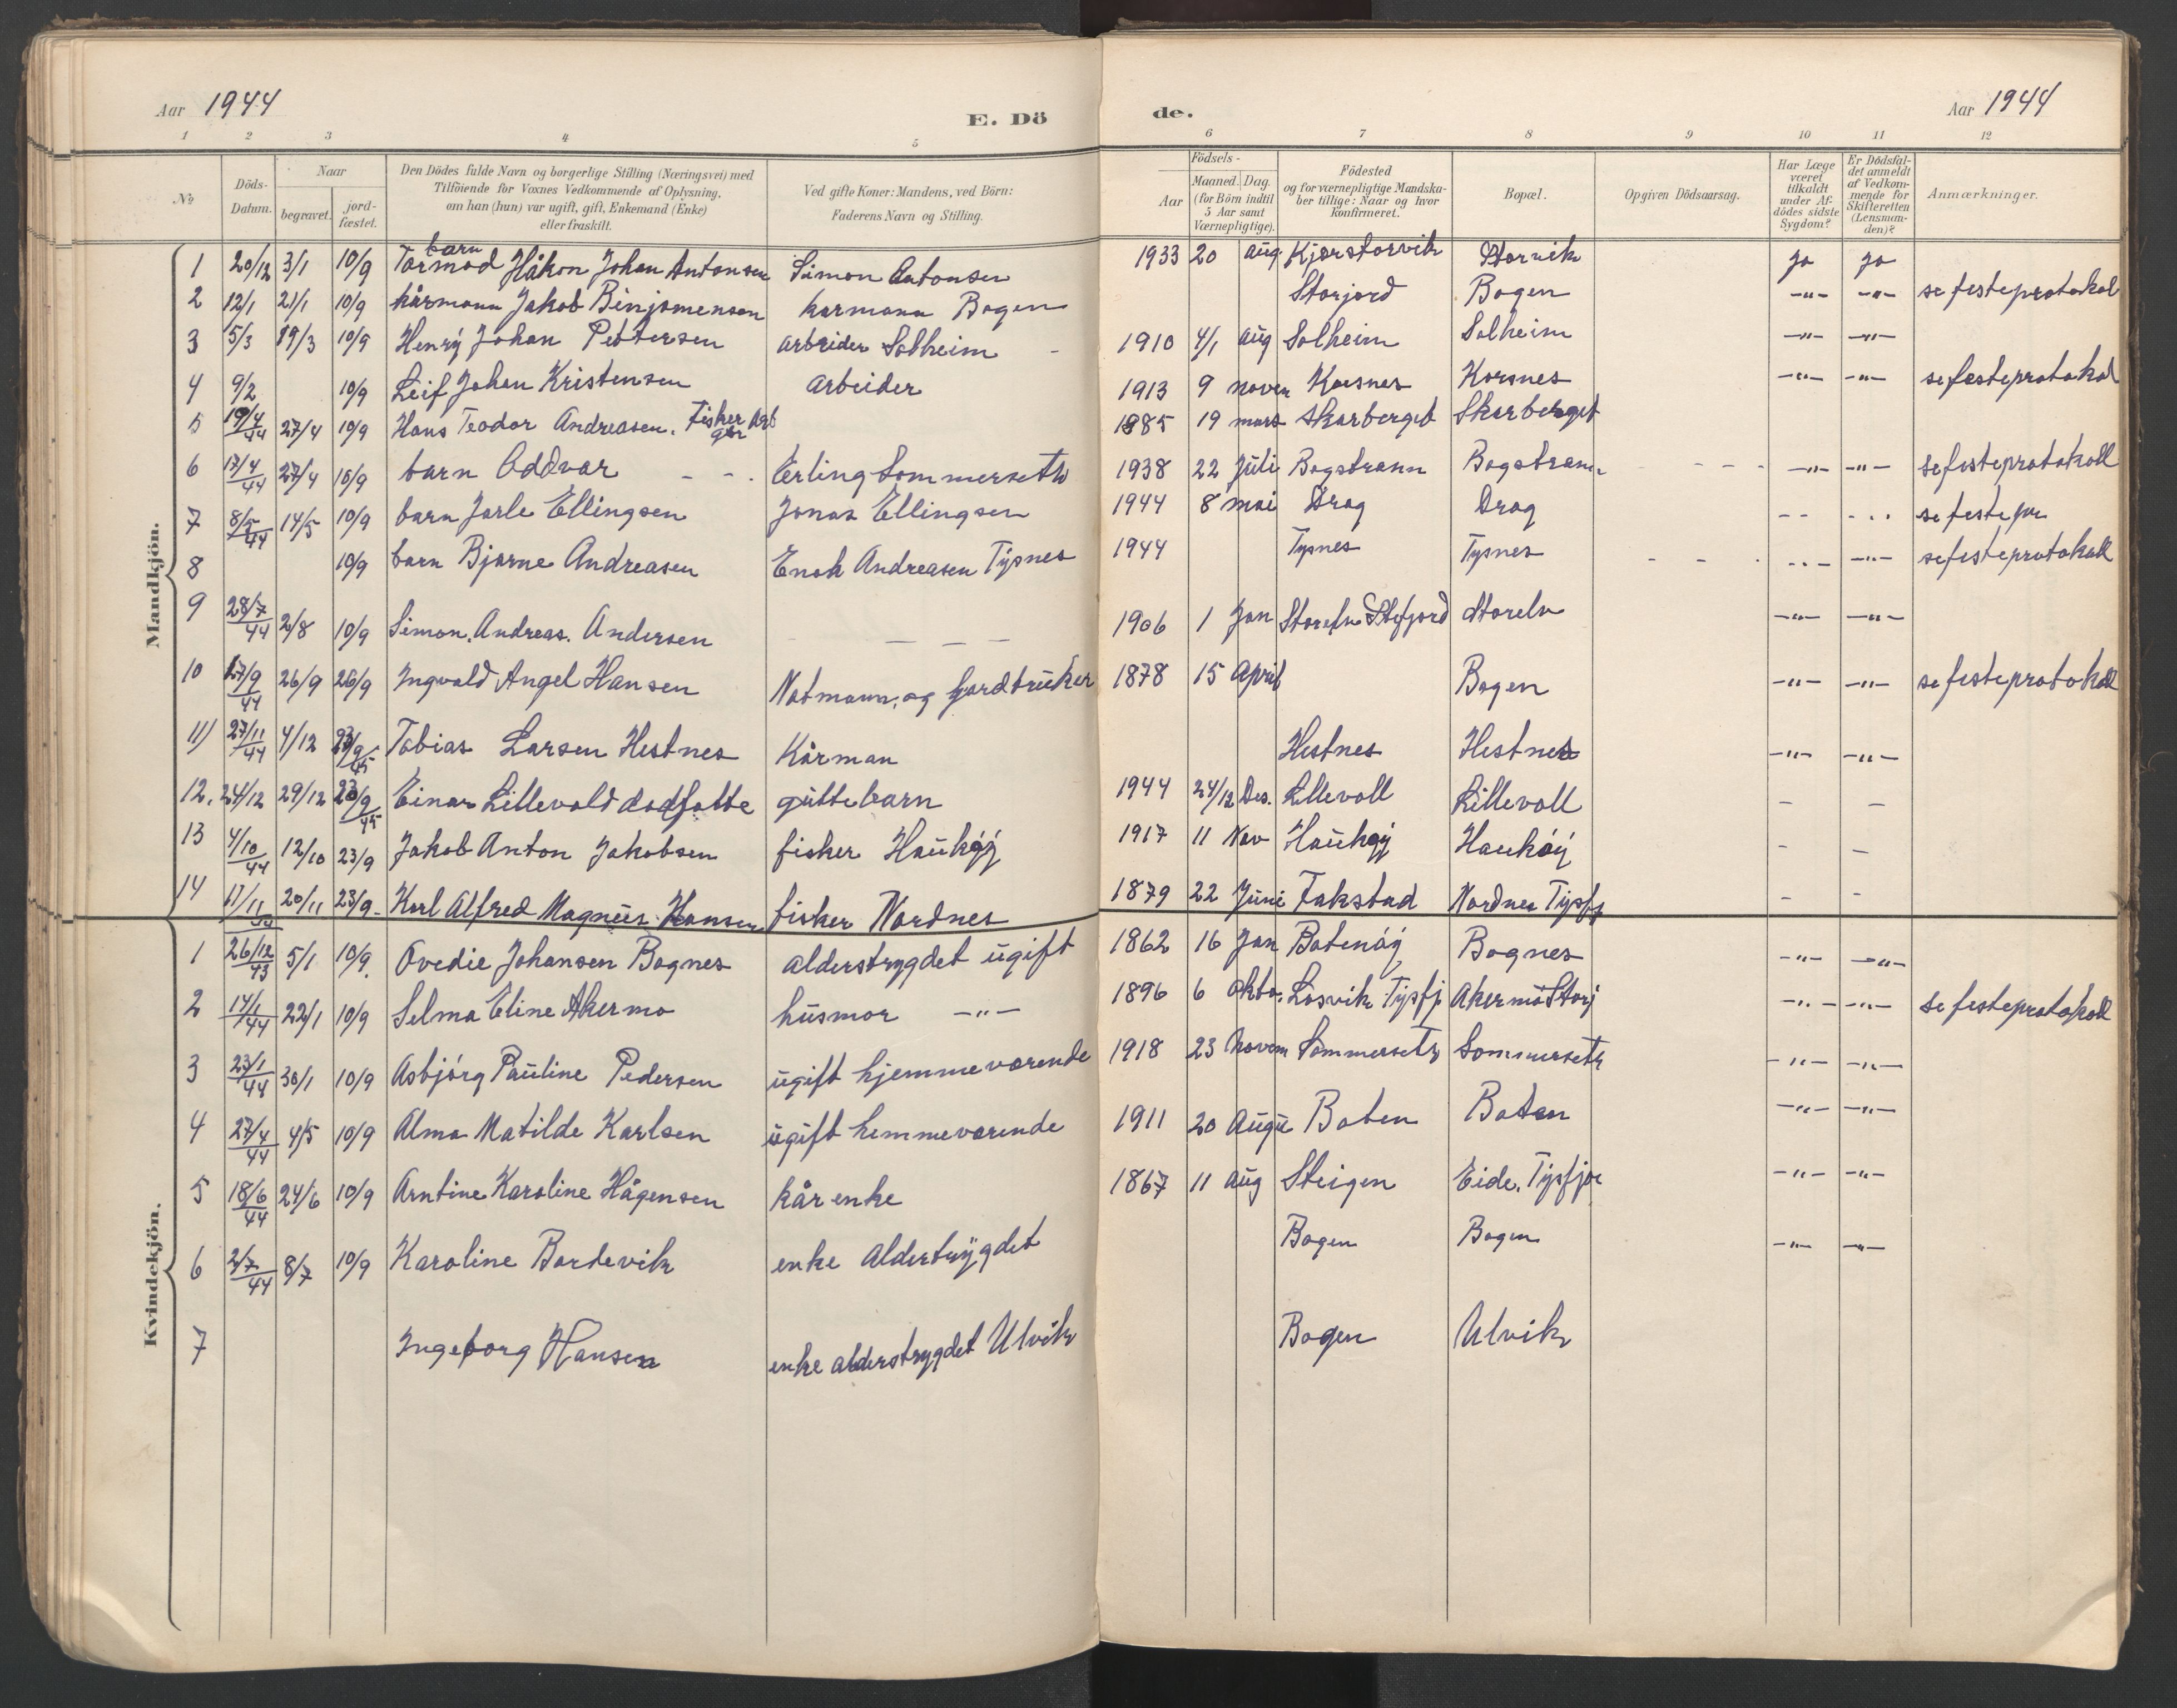 Aar 1944
E. Dö
1 2 3 4 5
Nº Döds-Datum. Naar begravet. jordfæstet. Den Dödes fulde Navn og borgerlige Stilling (Næringsvei) med Tilföiende for Voxnes Vedkommende af Oplysning, om han (hun) var ugift, gift, Enkemand (Enke) eller fraskilt. Ved gifte Koner: Mandens, ved Börn: Faderens Navn og Stilling.
Mandkjön.
barn
1 20/12 3/1 10/9 Tormod Håkon Johan Antonsen Simon Antonsen
2 12/1 21/1 10/9 kårmann Jakob Binjomensen karmann Bogen
3 5/3 19/3 10/9 Henrÿ Johan Pettersen arbeider Solheim -
4 9/2 10/9 Leif Johan Kristensen arbeider
5 19/4 44 27/4 10/9 Hans Teodor Andreasen. Fisker
6 17/4 44 27/4 10/9 barn Oddvar - - . Erling Sommerseth
7 8/5 44 14/5 10/9 barn Jarle Ellingsen Jonas Ellingsen
8 10/9 barn Bjarne Andreasen Enok Andreasen Tÿsnes
9 28/7 44 2/8 10/9 Simon. Andreas. Andersen - - - -
10 17/9 44 26/9 26/9 Ingvald Angel Hansen Notmann, og gardbrüker
11) 27/11 44 4/12 23/9 45 Tobias Larsen Hestnes Kårman
12. 24/12 29/12 23/9 45 Einar Lillevold dødfötte güttebarn
13 4/10 44 12/10 23/9 Jakob Anton Jakobsen fisker Haükøÿ
14 11/11 20/11 23/9- Karl Alfred Magnüs Hansen fisker Nordnes
Kvindekjön.
1 26/12 43 5/1 10/9. Ovedie Johansen Bognes alderstrygdet ügift
2 14/1 44 22/1 10/9 Selma Eline Akermo hüsmor -"-
3 23/1 44 30/1 10/9 Asbjórg Paüline Pedersen ügift hjemmevorende
4 27/4 44 4/5 10/9 Alma Matilde Karlsen ügift hemmevorende
5 18/6 44 24/6 10/9 Arntine Karoline Hågensen kår enke
6 2/7 44 8/7 10/9 Karoline Bordevik enke Aldertrÿgdet
7 Ingeborg Hansen enke alderstrygdet Ulvik
de.
Aar 1944
6 7 8 9 10 11 12
Aar Födsels- Maaned. Dag. (for Börn indtil 5 Aar samt Værnepligtige). Födested og for værnepligtige Mandskaber tillige: Naar og hvor Konfirmeret. Bopæl. Opgiven Dödsaarsag. Har Læge været tilkaldt under Afdödes sidste Sygdom? Er Dödsfaldet anmeldt af Vedkommende for Skifteretten (Lensmanden)? Anmærkninger.
1933 20 aug. Kjørstorvik Storvik Ja Ja
Storjord Bogen -"- -"- se festeprotokol
1910 4/1 aüg Solheim Solheim -"- -"-
1913 9 novem Korsnes Korsnes -"- -"- se festeprotokol
1885 19 mars Skarberget Skarberget
1938 22 Jüli Bogstrann Bogstrann - - - -"- -"- se festeprotokoll
1944 8 mai Drag Drag - - - . . se festepr
1944 Tysnes Tysnes - - . - . . - -"- se festeprotokoll
1906 1 Jan Storelv Stefjord Storelv -"- -"-
1878 15 April Bogen -"- -"- se festeprotokoll
Hestnes Hestnes -"- -"-
1944 24/12 Des. Lillevoll Lillevoll - -
1917 11 Nov Haükøÿ Haukøÿ - -
1879 22 Jüni Fakstad Nordnes Tysfj - -
1862 16 Jan Botenóÿ Bognes -"- -"-
1896 6 okto. Losvik Tysfj Akermo Storj -"- -"- se festeprotokoll
1918 23 Novem Sommerseth Sommerseth -"- -"-
1911 20 Augü Boten Boten -"- -"-
1867 11 Aüg Steigen Eide. Tysfjo -"- -"-
Bogen Bogen -"- -"-
Bogen Ulvik